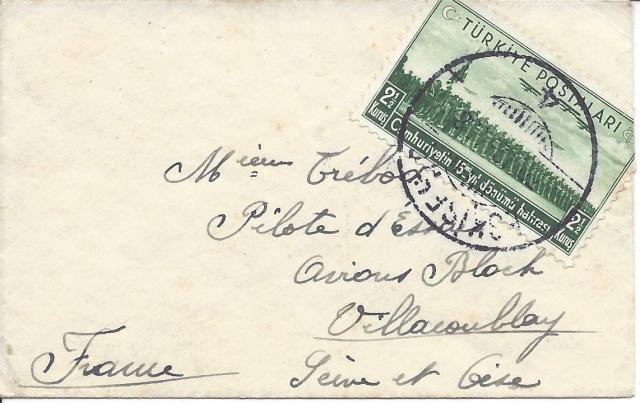 TÜRKİYE POSTALARI
2½ Kuruş
Cumhuriyetin 15 yıl dönümü hatırası
2½ Kuruş
Pilote d'Essai
Avions Bloch
Villacoublay
Seine et Oise
France